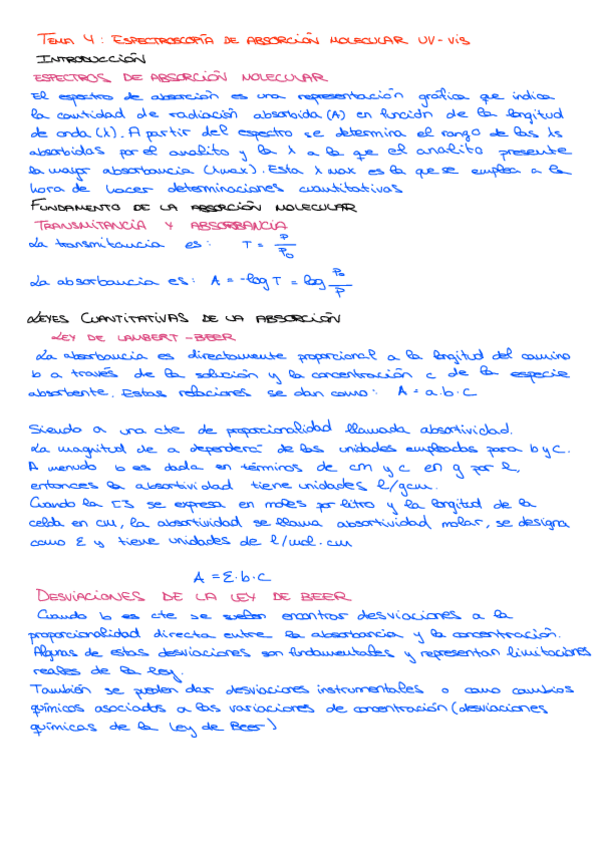 TEMA 4: ESPECTROSCOPÍA DE ABSORCIÓN MOLECULAR UV-VIS
INTRODUCCIÓN
ESPECTROS DE ABSORCIÓN MOLECULAR
El espectro de absorción es una representación gráfica que indica
la cantidad de radiación absorbida (A) en función de la longitud
de onda (λ). A partir del espectro se determina el rango de las λs
absorbidas por el analito y la λ a la que el analito presente
la mayor absorbancia (λmax). Esta λ max es la que se emplea a la
hora de hacer determinaciones cuantitativas
FUNDAMENTO DE LA ABSORCIÓN MOLECULAR
TRANSMITANCIA Y ABSORBANCIA
La transmitancia es: T = P/P₀
La absorbancia es: A = -log T = log P₀/P
LEYES CUANTITATIVAS DE LA ABSORCIÓN
LEY DE LAMBERT-BEER
La absorbancia es directamente proporcional a la longitud del camino
b a través de la solución y la concentración c de la especie
absorbente. Estas relaciones se dan como: A = a·b·c
Siendo a una cte de proporcionalidad llamada absortividad.
La magnitud de a dependerá de las unidades empleadas para b y c.
A menudo b es dada en términos de cm y c en g por l,
entonces la absortividad tiene unidades l/gcm.
Cuando la [] se expresa en moles por litro y la longitud de la
celda en cm, la absortividad se llama absortividad molar, se designa
como Ɛ y tiene unidades de l/mol·cm
A = Ɛ·b·c
DESVIACIONES DE LA LEY DE BEER
Cuando b es cte se suelen encontrar desviaciones a la
proporcionalidad directa entre la absorbancia y la concentración.
Algunas de estas desviaciones son fundamentales y representan limitaciones
reales de la ley.
También se pueden dar desviaciones instrumentales o como cambios
químicos asociados a las variaciones de concentración (desviaciones
químicas de la Ley de Beer)